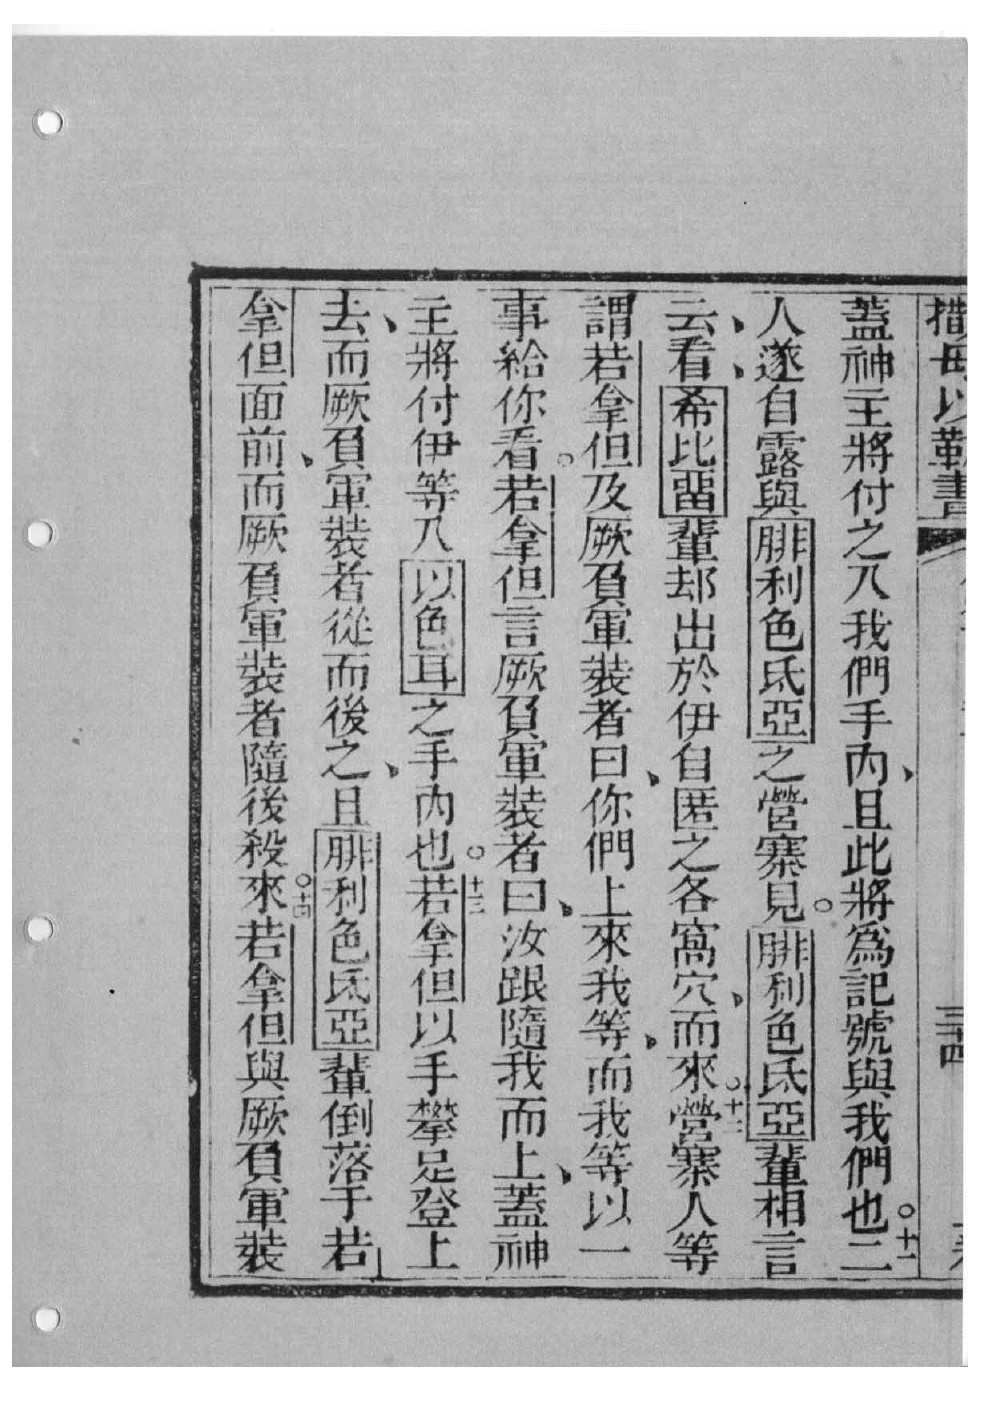 撒母以勒書
三十四
蓋神主將付之入我們手內、且此將為記號與我們也。十一二
人遂自露與腓利色氐亞之營寨見。腓利色氐亞輩相言
云、看、希比畱輩却出於伊自匿之各窩穴、而來。十二營寨人等
謂若拿但及厥負軍裝者曰、你們上來我等、而我等以一
事給你看。若拿但言厥負軍裝者曰、汝跟隨我而上、蓋神
主將付伊等入以色耳之手內也。十三若拿但以手攀足登上
去、而厥負軍裝者從而後之、且腓利色氐亞輩倒落于若
拿但面前、而厥負軍裝者隨後殺來。十四若拿但與厥負軍裝